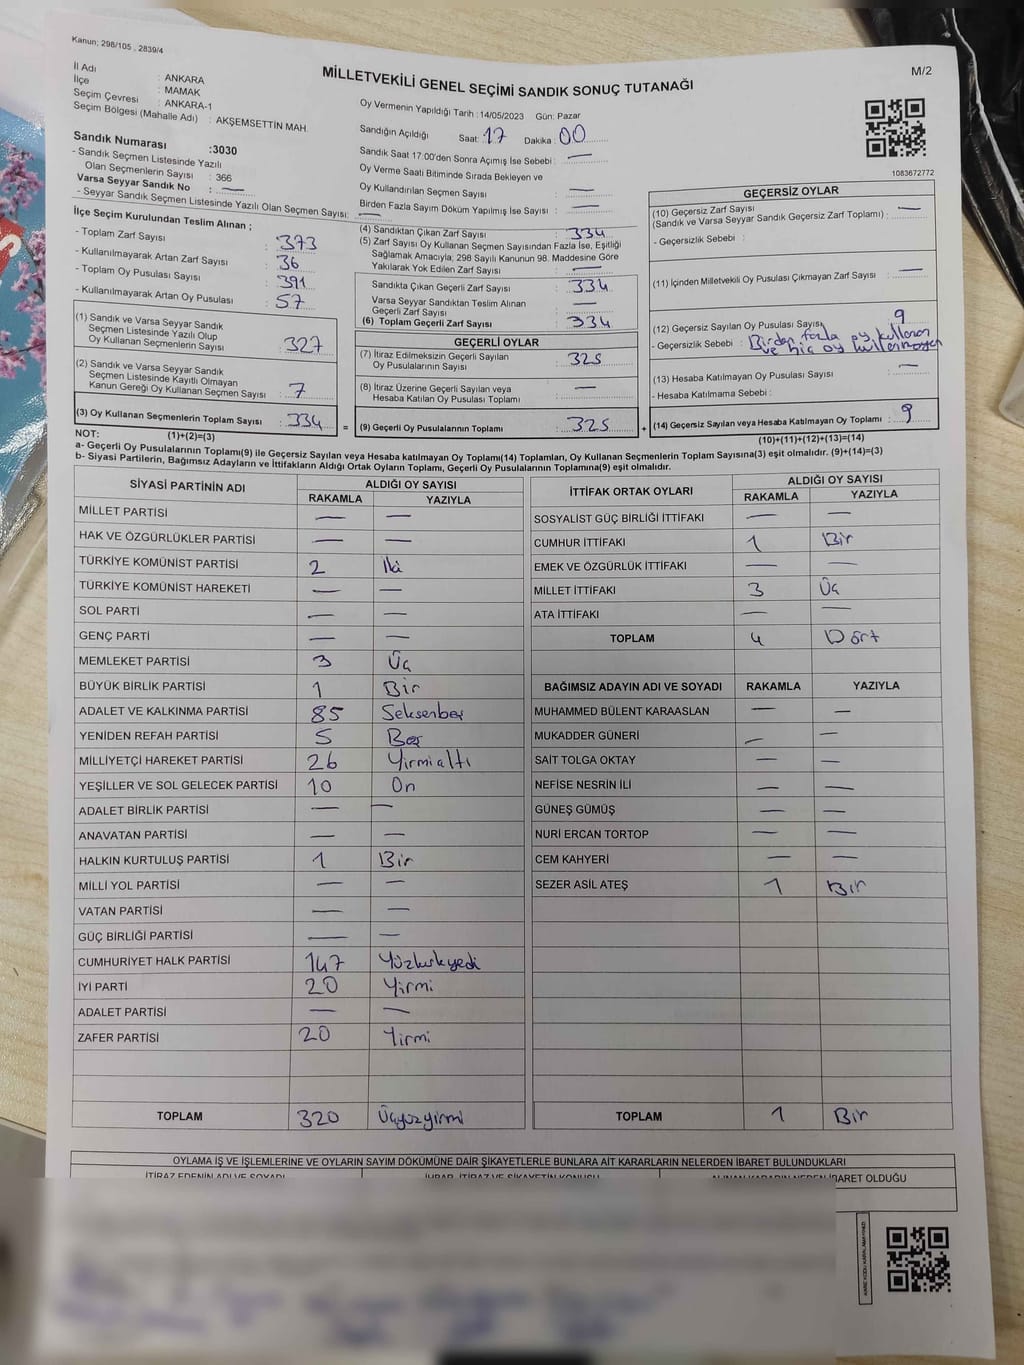 Kanun; 298/105 , 2839/4
MİLLETVEKİLİ GENEL SEÇİMİ SANDIK SONUÇ TUTANAĞI
M/2
İl Adı : ANKARA
İlçe : MAMAK
Seçim Çevresi : ANKARA-1
Seçim Bölgesi (Mahalle Adı) : AKŞEMSETTİN MAH.
Sandık Numarası :3030
- Sandık Seçmen Listesinde Yazılı
Olan Seçmenlerin Sayısı : 366
Varsa Seyyar Sandık No : —
- Seyyar Sandık Seçmen Listesinde Yazılı Olan Seçmen Sayısı: —
İlçe Seçim Kurulundan Teslim Alınan ;
- Toplam Zarf Sayısı : 373
- Kullanılmayarak Artan Zarf Sayısı : 36
- Toplam Oy Pusulası Sayısı : 391
- Kullanılmayarak Artan Oy Pusulası : 57
(1) Sandık ve Varsa Seyyar Sandık
Seçmen Listesinde Yazılı Olup
Oy Kullanan Seçmenlerin Sayısı : 327
(2) Sandık ve Varsa Seyyar Sandık
Seçmen Listesinde Kayıtlı Olmayan
Kanun Gereği Oy Kullanan Seçmen Sayısı : 7
(3) Oy Kullanan Seçmenlerin Toplam Sayısı : 334
Oy Vermenin Yapıldığı Tarih : 14/05/2023 Gün: Pazar
Sandığın Açıldığı Saat: 17 Dakika : 00
Sandık Saat 17:00'den Sonra Açımış İse Sebebi : —
Oy Verme Saati Bitiminde Sırada Bekleyen ve
Oy Kullandırılan Seçmen Sayısı : —
Birden Fazla Sayım Döküm Yapılmış İse Sayısı : —
(4) Sandıktan Çıkan Zarf Sayısı : 334
(5) Zarf Sayısı Oy Kullanan Seçmen Sayısından Fazla İse, Eşitliği
Sağlamak Amacıyla; 298 Sayılı Kanunun 98. Maddesine Göre
Yakılarak Yok Edilen Zarf Sayısı : —
Sandıkta Çıkan Geçerli Zarf Sayısı : 334
Varsa Seyyar Sandıktan Teslim Alınan
Geçerli Zarf Sayısı : —
(6) Toplam Geçerli Zarf Sayısı : 334
GEÇERLİ OYLAR
(7) İtiraz Edilmeksizin Geçerli Sayılan
Oy Pusulalarının Sayısı : 325
(8) İtiraz Üzerine Geçerli Sayılan veya
Hesaba Katılan Oy Pusulası Toplamı : —
= (9) Geçerli Oy Pusulalarının Toplamı : 325
1083672772
GEÇERSİZ OYLAR
(10) Geçersiz Zarf Sayısı
(Sandık ve Varsa Seyyar Sandık Geçersiz Zarf Toplamı) : —
- Geçersizlik Sebebi :
(11) İçinden Milletvekili Oy Pusulası Çıkmayan Zarf Sayısı : —
(12) Geçersiz Sayılan Oy Pusulası Sayısı : 9
- Geçersizlik Sebebi : Birden fazla oy kullanan
ve hiç oy kullanmayan
(13) Hesaba Katılmayan Oy Pusulası Sayısı : —
- Hesaba Katılmama Sebebi :
+ (14) Geçersiz Sayılan veya Hesaba Katılmayan Oy Toplamı : 9
NOT: (1)+(2)=(3) (10)+(11)+(12)+(13)=(14)
a- Geçerli Oy Pusulaların Toplamı(9) ile Geçersiz Sayılan veya Hesaba katılmayan Oy Toplamı(14) Toplamları, Oy Kullanan Seçmenlerin Toplam Sayısına(3) eşit olmalıdır. (9)+(14)=(3)
b- Siyasi Partilerin, Bağımsız Adayların ve İttifakların Aldığı Ortak Oyların Toplamı, Geçerli Oy Pusulalarının Toplamına(9) eşit olmalıdır.
SİYASİ PARTİNİN ADI ALDIĞI OY SAYISI
RAKAMLA YAZIYLA
MİLLET PARTİSİ — —
HAK VE ÖZGÜRLÜKLER PARTİSİ — —
TÜRKİYE KOMÜNİST PARTİSİ 2 İki
TÜRKİYE KOMÜNİST HAREKETİ — —
SOL PARTİ — —
GENÇ PARTİ — —
MEMLEKET PARTİSİ 3 Üç
BÜYÜK BİRLİK PARTİSİ 1 Bir
ADALET VE KALKINMA PARTİSİ 85 Seksenbeş
YENİDEN REFAH PARTİSİ 5 Beş
MİLLİYETÇİ HAREKET PARTİSİ 26 Yirmialtı
YEŞİLLER VE SOL GELECEK PARTİSİ 10 On
ADALET BİRLİK PARTİSİ — —
ANAVATAN PARTİSİ — —
HALKIN KURTULUŞ PARTİSİ 1 Bir
MİLLİ YOL PARTİSİ — —
VATAN PARTİSİ — —
GÜÇ BİRLİĞİ PARTİSİ — —
CUMHURİYET HALK PARTİSİ 147 Yüzkırkyedi
İYİ PARTİ 20 Yirmi
ADALET PARTİSİ — —
ZAFER PARTİSİ 20 Yirmi
TOPLAM 320 Üçyüzyirmi
İTTİFAK ORTAK OYLARI ALDIĞI OY SAYISI
RAKAMLA YAZIYLA
SOSYALİST GÜÇ BİRLİĞİ İTTİFAKI — —
CUMHUR İTTİFAKI 1 Bir
EMEK VE ÖZGÜRLÜK İTTİFAKI — —
MİLLET İTTİFAKI 3 Üç
ATA İTTİFAKI — —
TOPLAM 4 Dört
BAĞIMSIZ ADAYIN ADI VE SOYADI RAKAMLA YAZIYLA
MUHAMMED BÜLENT KARAASLAN — —
MUKADDER GÜNERİ — —
SAİT TOLGA OKTAY — —
NEFİSE NESRİN İLİ — —
GÜNEŞ GÜMÜŞ — —
NURİ ERCAN TORTOP — —
CEM KAHYERİ — —
SEZER ASİL ATEŞ 1 Bir
TOPLAM 1 Bir
OYLAMA İŞ VE İŞLEMLERİNE VE OYLARIN SAYIM DÖKÜMÜNE DAİR ŞİKAYETLERLE BUNLARA AİT KARARLARIN NELERDEN İBARET BULUNDUKLARI
İTİRAZ EDENİN ADI VE SOYADI İHBAR, İTİRAZ VE ŞİKAYETİN KONUSU ALINAN KARARIN NEDEN İBARET OLDUĞU